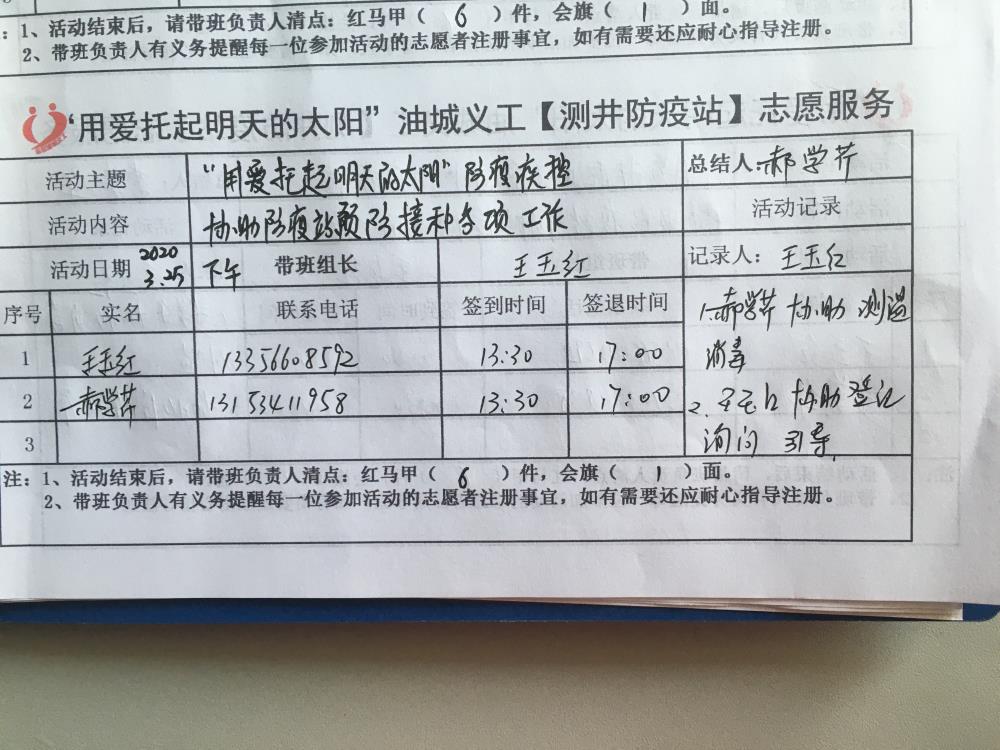 ：1、活动结束后，请带班负责人清点：红马甲（ 6 ）件，会旗（ 1 ）面。
2、带班负责人有义务提醒每一位参加活动的志愿者注册事宜，如有需要还应耐心指导注册。
“用爱托起明天的太阳”油城义工【测井防疫站】志愿服务
活动主题 “用爱托起明天的太阳”防疫疾控 总结人：郝学芹
活动内容 协助防疫站预防接种各项工作 活动记录
活动日期 2020 3.25 下午 带班组长 王玉红 记录人：王玉红
序号 实名 联系电话 签到时间 签退时间
1 王玉红 13356608592 13:30 17:00
2 郝学芹 13153411958 13:30 17:00
3
1.郝学芹 协助 测温
消毒
2. 王玉红 协助登记
询问 引导
注：1、活动结束后，请带班负责人清点：红马甲（ 6 ）件，会旗（ 1 ）面。
2、带班负责人有义务提醒每一位参加活动的志愿者注册事宜，如有需要还应耐心指导注册。